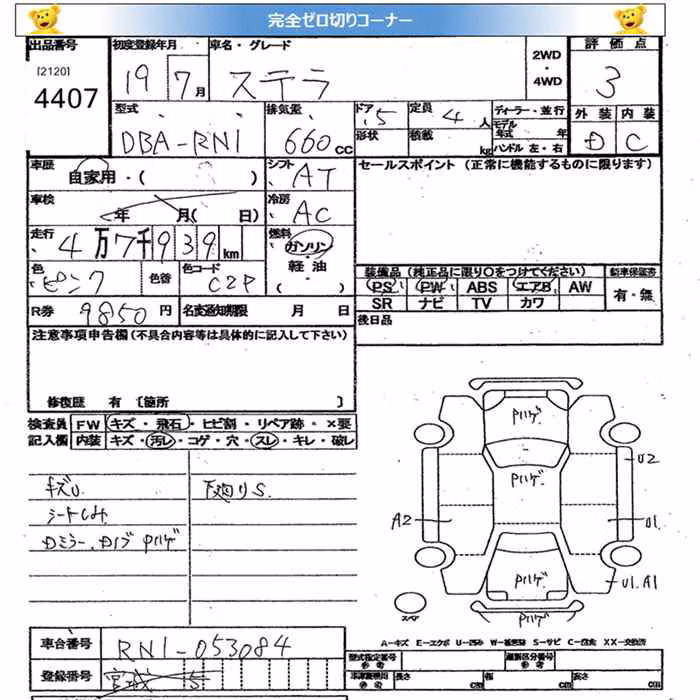 完全ゼロ切りコーナー
出品番号
[2120]
4407
初度登録年月
19 7 月
車名・グレード
ステラ
2WD
・
4WD
評価点
3
外装 内装
D C
型式
DBA-RN1
排気量
660 CC
ドア 5
形状
定員 4 人
積載 kg
ディーラー・並行
モデル年式 年
ハンドル 左・右
車歴
自家用・( )
シフト
AT
セールスポイント (正常に機能するものに限ります)
車検
年 月( 日)
冷房
AC
走行
4万7千939 km
燃料
ガソリン
・
軽油
( )
色
ピンク
色替
色コード
C2P
装備品 (純正品に限り○をつけてください)
PS PW ABS エアB AW
SR ナビ TV カワ
新車保証書
有・無
R券
9850円
名変通知期限 月 日
後日品
注意事項申告欄 (不具合内容等は具体的に記入して下さい)
修復歴 有 〔箇所 〕
検査員
記入欄
FW キズ・飛石・ヒビ割・リペア跡・×要
内装 キズ・汚レ・コゲ・穴・スレ・キレ・破レ
キズU
シートしみ
Dミラー、Dノブ Pハゲ
下廻りS
Pハゲ
Pハゲ
Pハゲ
U2
A2
U1
U1.A1
スペア
A-キズ E-エクボ U-凹み W-補修跡 S-サビ C-腐食 XX-交換済
車台番号
RN1-053084
登録番号
宮城 5
型式指定番号
参考
類別区分番号
車庫証明用
参考
長さ cm
幅 cm
高さ cm